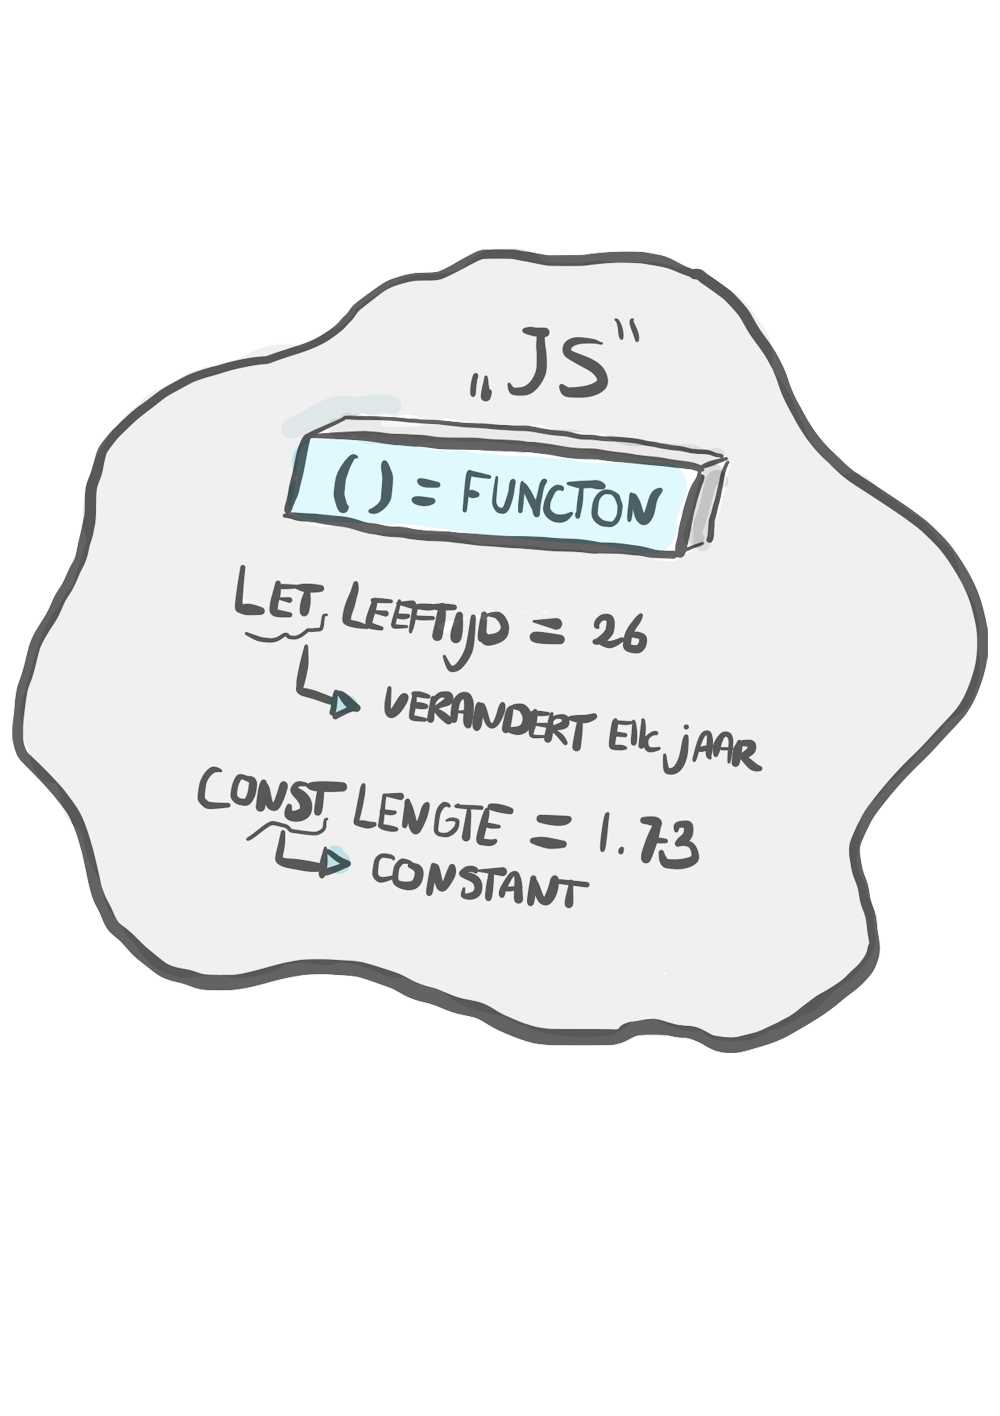 „JS"
() = FUNCTON
LET LEEFTIJD = 26
VERANDERT Elk jAAR
CONST LENGTE = 1.73
CONSTANT